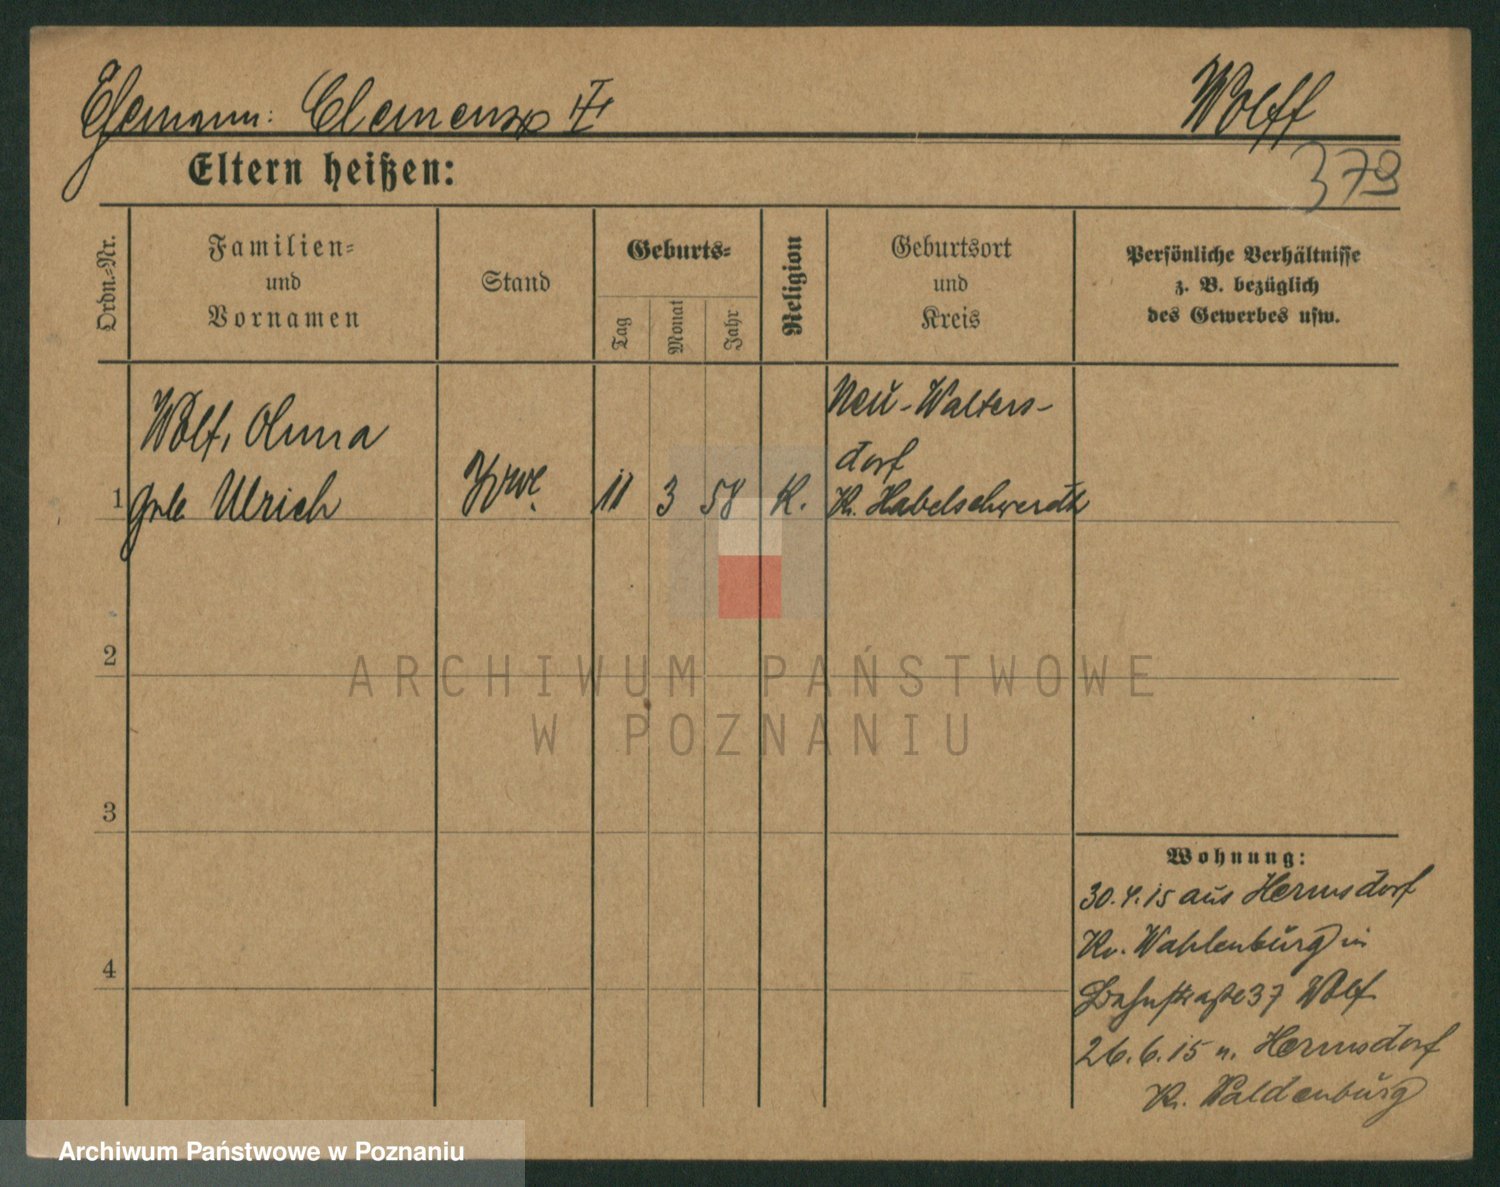 Ehemann: Clemens Wolff
379
Eltern heißen:
Ordn.-Nr.
Familien-
und
Vornamen
Stand
Geburts-
Tag
Monat
Jahr
Religion
Geburtsort
und
Kreis
Persönliche Verhältnisse
z. B. bezüglich
des Gewerbes usw.
Wolf, Anna
1 Ulrich Wwe. 11 3 58 K.
Neu-Walters-
dorf
Kr. Habelschwerdt
2
3
4
Wohnung:
30.4.15 aus Hermsdorf
Kr. Wahlenburg in
37 Wolf
26.6.15 n. Hermsdorf
Kr. Waldenburg
ARCHIWUM PAŃSTWOWE
W POZNANIU
Archiwum Państwowe w Poznaniu